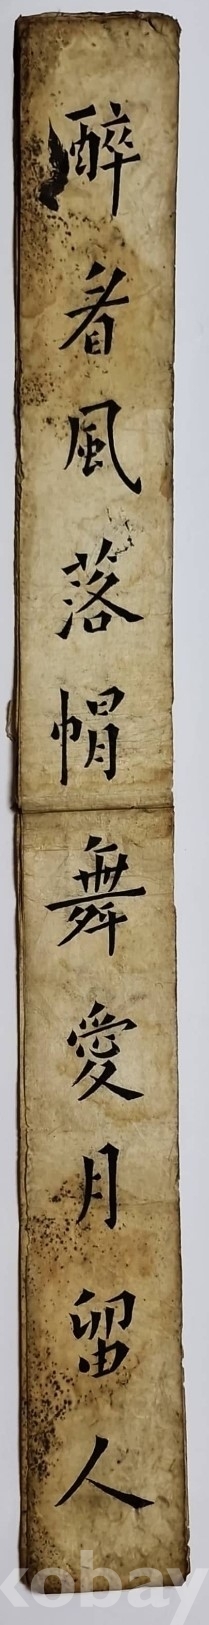 醉看風落帽舞愛月留人
kobay